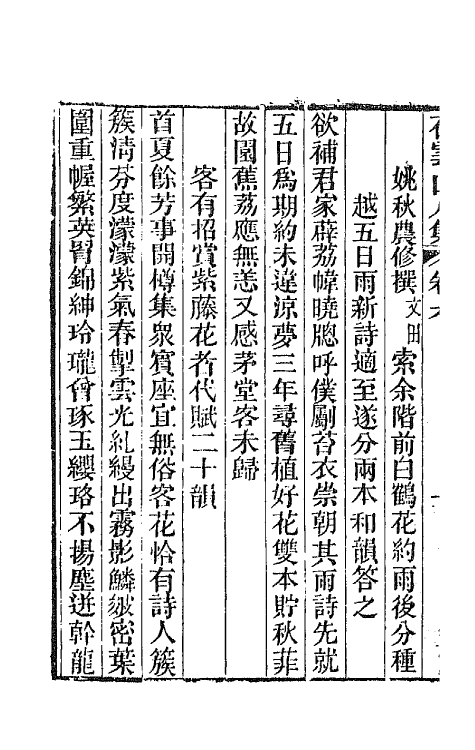 石雲山人集 卷
姚秋農修撰文田索余階前白鶴花約雨後分種
越五日雨新詩適至遂分兩本和韻答之
欲補君家薜荔幃曉牕呼僕劚苔衣崇朝其雨詩先就
五日爲期約未違涼夢三年尋舊植好花雙本貯秋菲
故園蕉荔應無恙又感茅堂客未歸
客有招賞紫藤花者代賦二十韻
首夏餘芳事開樽集衆賓座宜無俗客花恰有詩人簇
簇淸芬度濛濛紫氣春掣雲光糺縵出霧影鱗皴密葉
圍重幄繁英罥錦紳玲瓏曾琢玉纓珞不揚塵迸幹龍